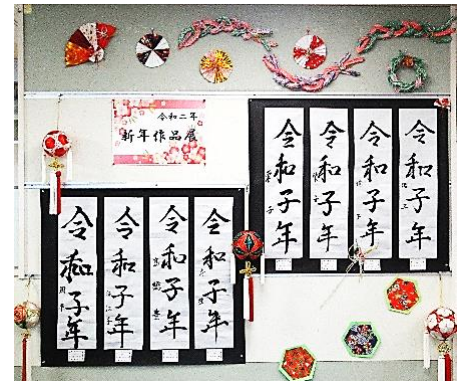 令和二年
新年作品展
令和子年
令和子年
令和子年
令和子年
令和子年
令和子年
令和子年
令和子年